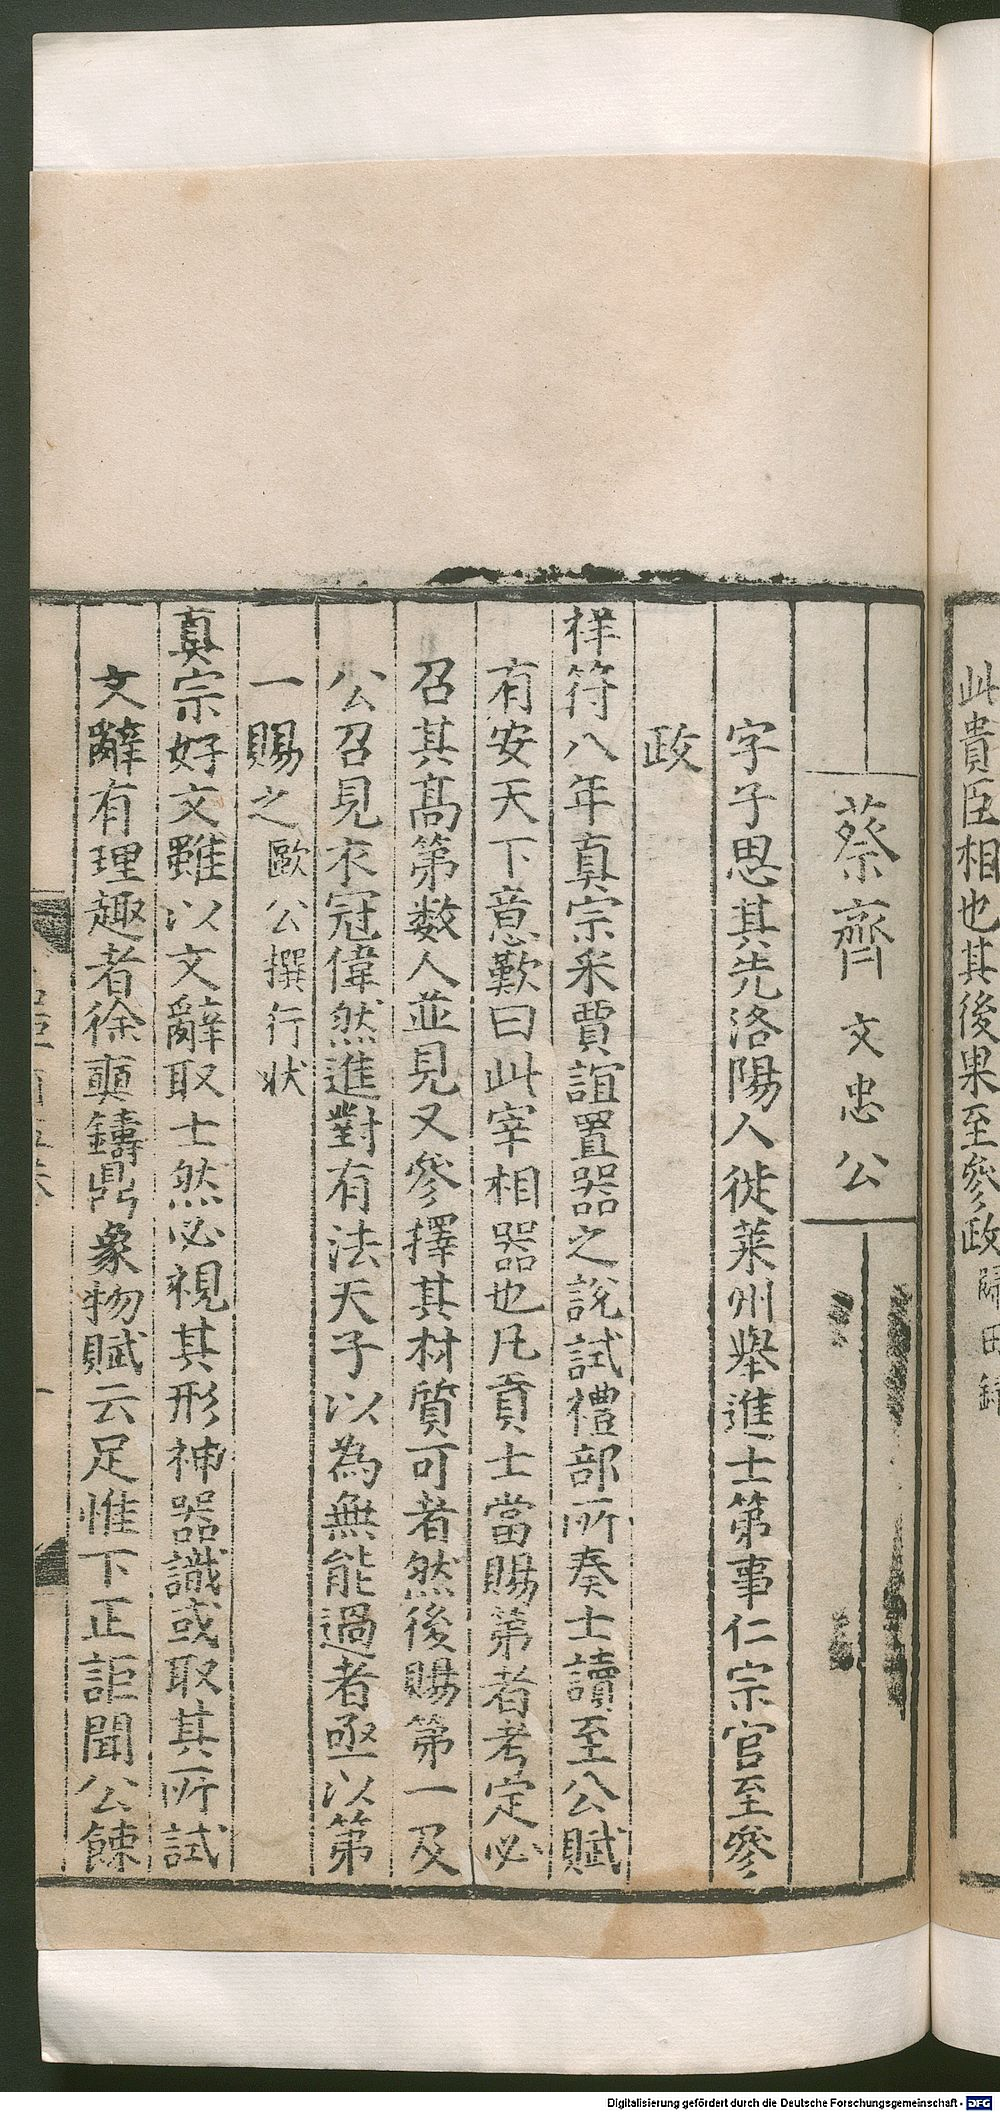 此貴臣相也其後果至參政歸田錄
蔡齊文忠公
字子思其先洛陽人徙萊州舉進士第事仁宗官至參
政
祥符八年真宗采賈誼置器之說試禮部所奏士讀至公賦
有安天下意歎曰此宰相器也凡貢士當賜第者考定必
召其髙第数人並見又參擇其材質可者然後賜第一及
公召見衣冠偉然進對有法天子以為無能過者亟以第
一賜之歐公撰行狀
真宗好文雖以文辭取士然必視其形神器識或取其所試
文辭有理趣者徐奭鑄鼎象物賦云足惟下正詎聞公餗
Digitalisierung gefördert durch die Deutsche Forschungsgemeinschaft - DFG